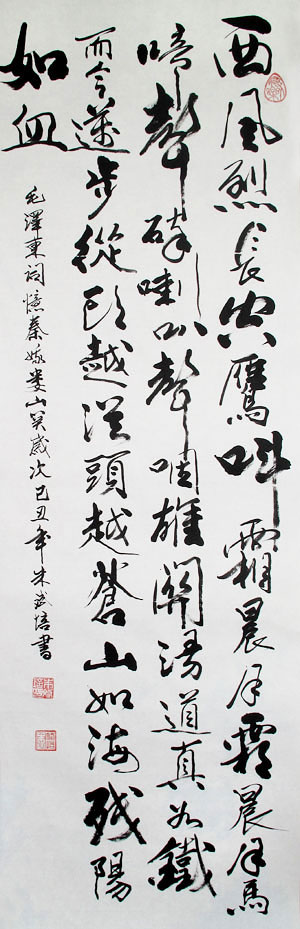 西風烈長空鴈叫霜晨月霜晨月馬
蹄聲碎喇叭聲咽雄關漫道真如鐵
而今邁步從頭越從頭越蒼山如海殘陽
如血
毛澤東詞憶秦娥娄山关歲次己丑年朱培書